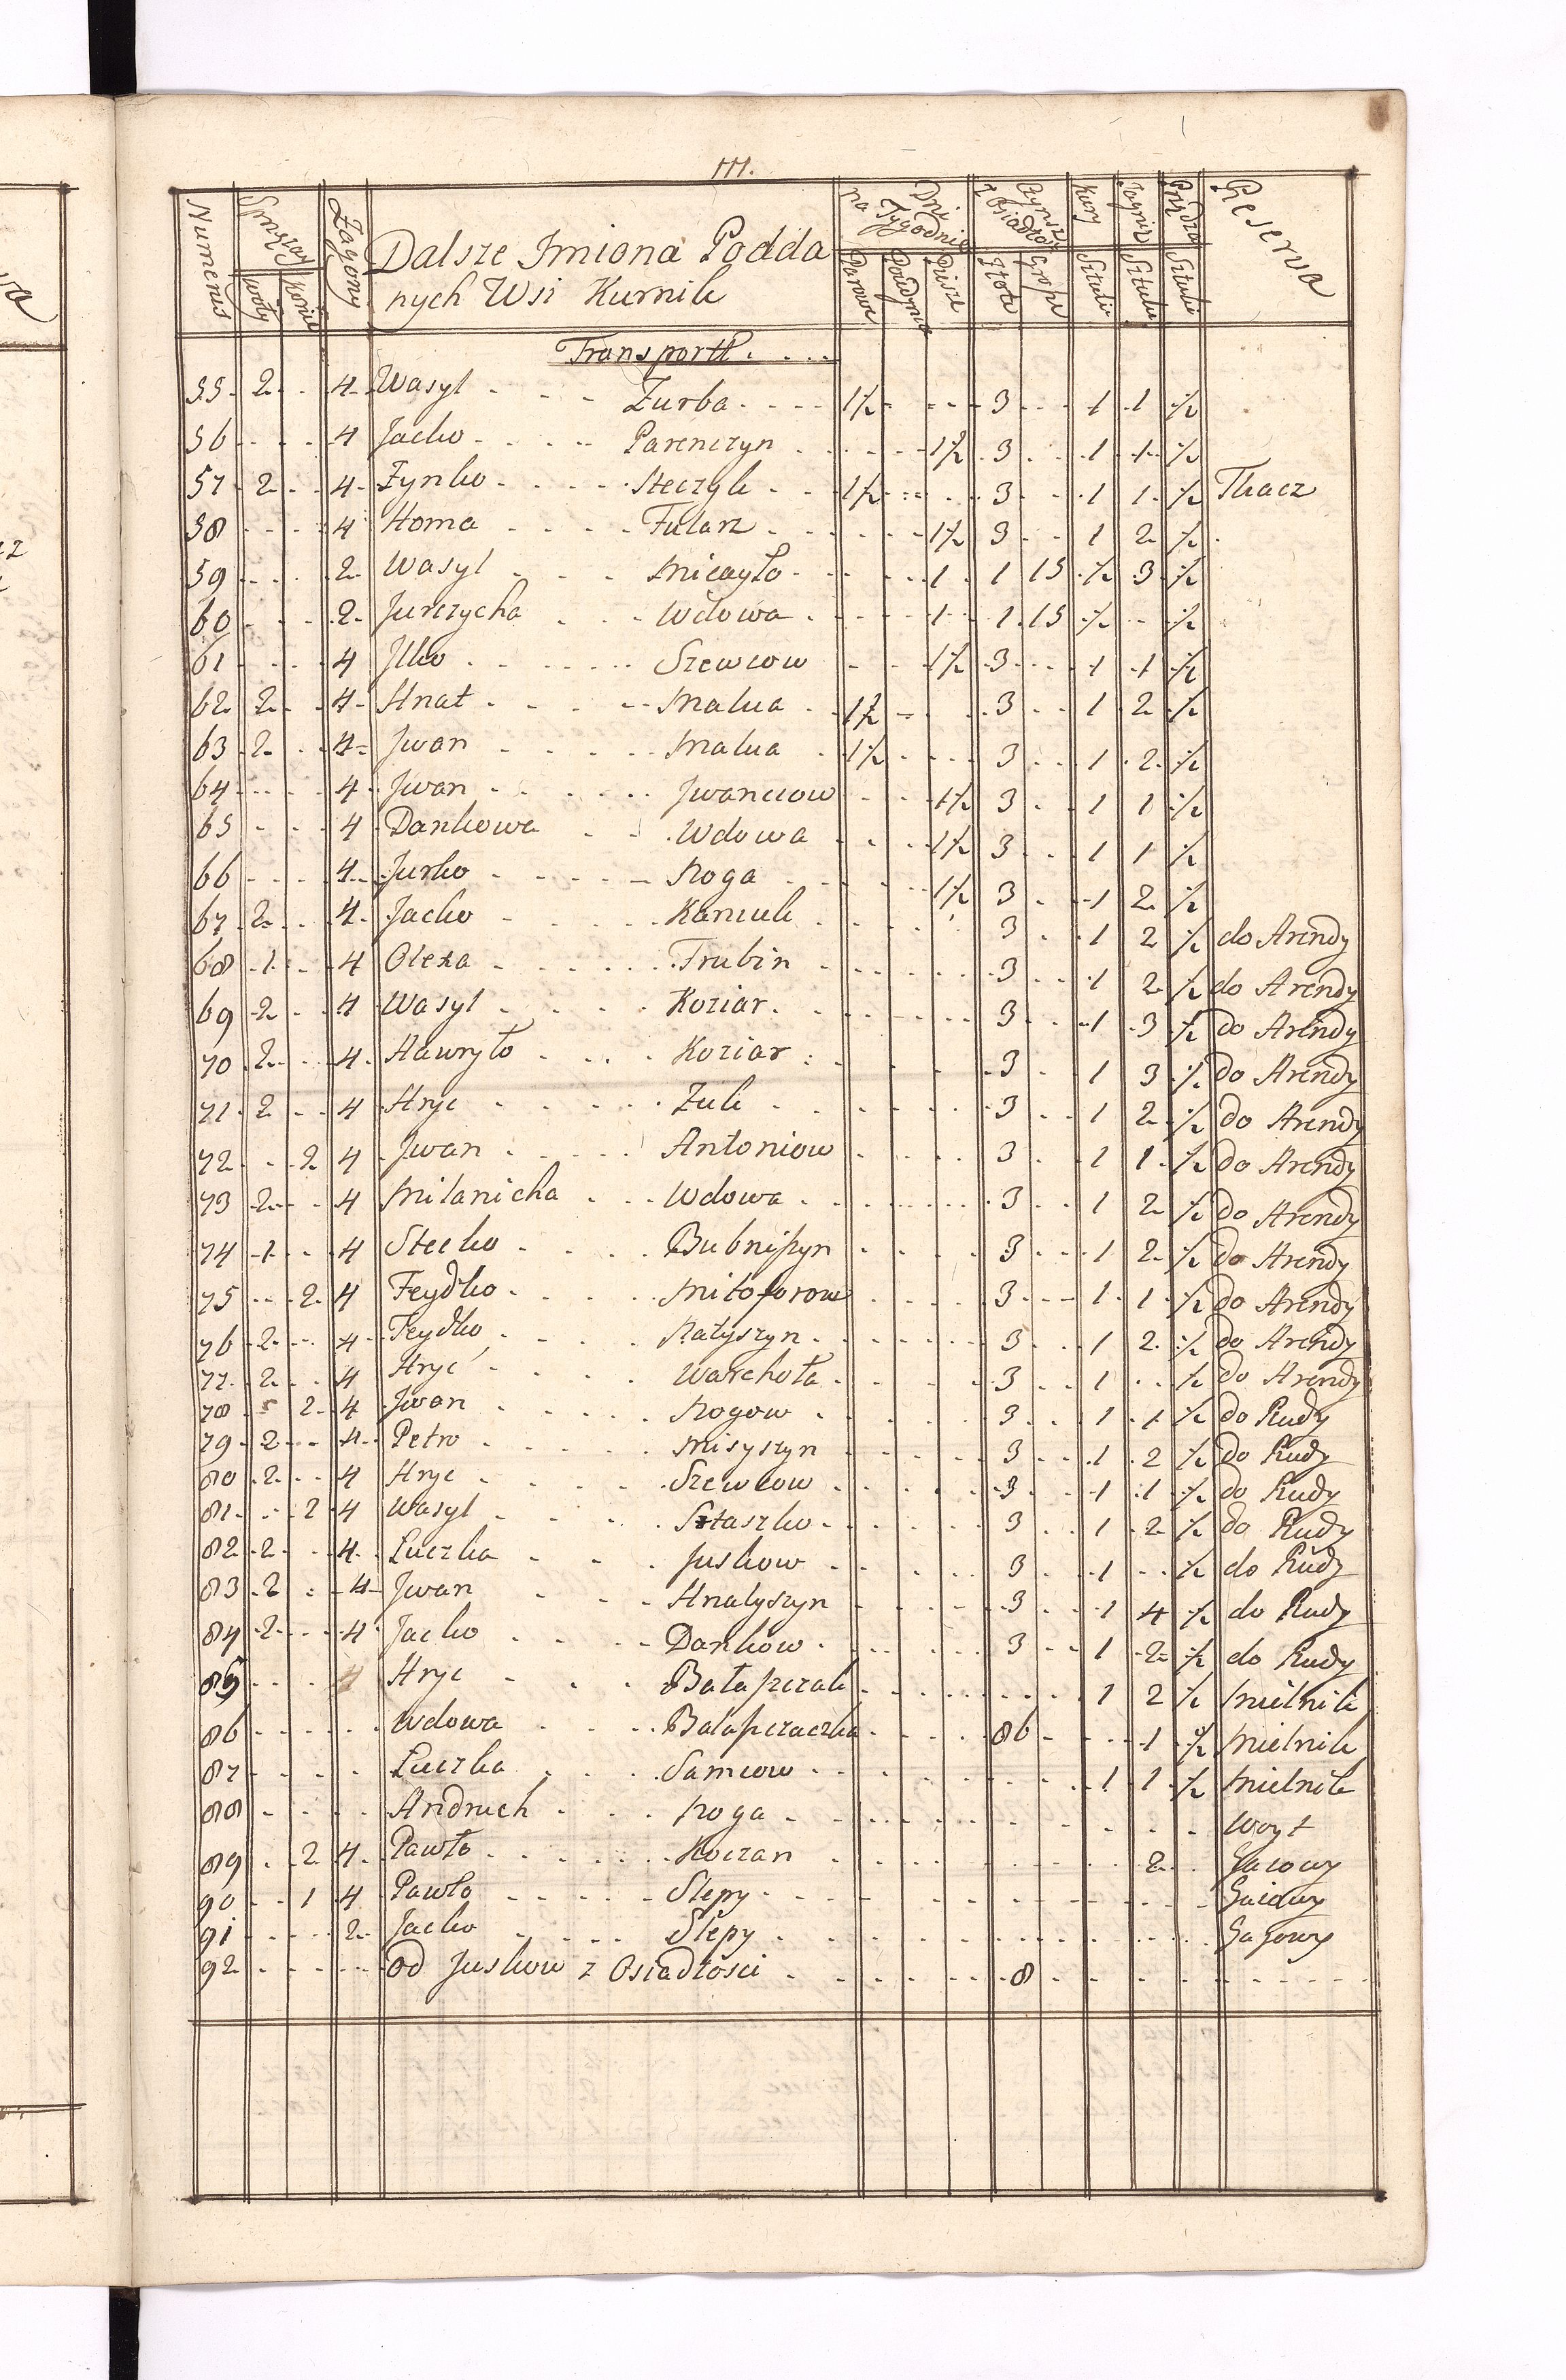 111.
Numerus Sprzezay Zagony Dni na Tygodniu Czynsz z Osiadłos Kury Jagniz Przędza Reserva
Woły Konie Parowe Poiedyncze Piesze Złote Grosze Sztuki Sztuki Sztuki
Dalsze Jmiona Podda
nych Wsi Kurnik
Transport
55 2 4 Wasyl Zurba 1½ 3 1 1 ½
56 4 Jacko Parenczyn 1½ 3 1 1 ½
57 2 4 Fynko Steczyk 1½ 3 1 1 ½ Tkacz
58 4 Homa Futarz 1½ 3 1 2 ½
59 2 Wasyl Micayło 1 1 15 ½ 3 ½
60 2 Jurczycha Wdowa 1 1 15 ½ ½
61 4 Jlko Szewcow 1½ 3 1 1 ½
62 2 4 Hnat Malua 1½ 3 1 2 ½
63 2 4 Jwan Malua 1½ 3 1 2 ½
64 4 Jwan Jwanciow 1½ 3 1 1 ½
65 4 Dankowa Wdowa 1½ 3 1 1 ½
66 4 Jurko Roga 1½ 3 1 2 ½
67 2 4 Jacko Kaniuk 3 1 2 ½ do Arendy
68 1 4 Olexa Trubin 3 1 2 ½ do Arendy
69 2 4 Wasyl Koziar 3 1 3 ½ do Arendy
70 2 4 Hawryło Koziar 3 1 3 ½ do Arendy
71 2 4 Hryc Zuk 3 1 2 ½ do Arendy
72 2 4 Jwan Antoniow 3 1 1 ½ do Arendy
73 2 4 Milanicha Wdowa 3 1 2 ½ do Arendy
74 1 4 Stecko Bubniszyn 3 1 2 ½ do Arendy
75 2 4 Feydko Mitoforow 3 1 1 ½ do Arendy
76 2 4 Feydko Natyszyn 3 1 2 ½ do Arendy
77 2 4 Hryc Warchoła 3 1 ½ do Arendy
78 2 4 Jwan Rogow 3 1 1 ½ do Rudy
79 2 4 Petro Misyszyn 3 1 2 ½ do Rudy
80 2 4 Hryc Szewcow 3 1 1 ½ do Rudy
81 2 4 Wasyl Sztaszko 3 1 2 ½ do Rudy
82 2 4 Luczka Juskow 3 1 ½ do Rudy
83 2 4 Jwan Hnatyszyn 3 1 4 ½ do Rudy
84 2 4 Jacko Dankow 3 1 2 ½ do Rudy
85 4 Hryc Bałaszczak 1 2 ½ Mielnik
86 Wdowa Bałaszczaczka 86 1 ½ Mielnik
87 Luczka Samcow 1 1 ½ Mielnik
88 Andruch Roga Woyt
89 2 4 Pawło Koczan 2 Gaiowy
90 1 4 Pawło Slepy Gaiowy
91 2 Jacko Slepy Gaiowy
92 Od Juskow z Osiadłosci 8